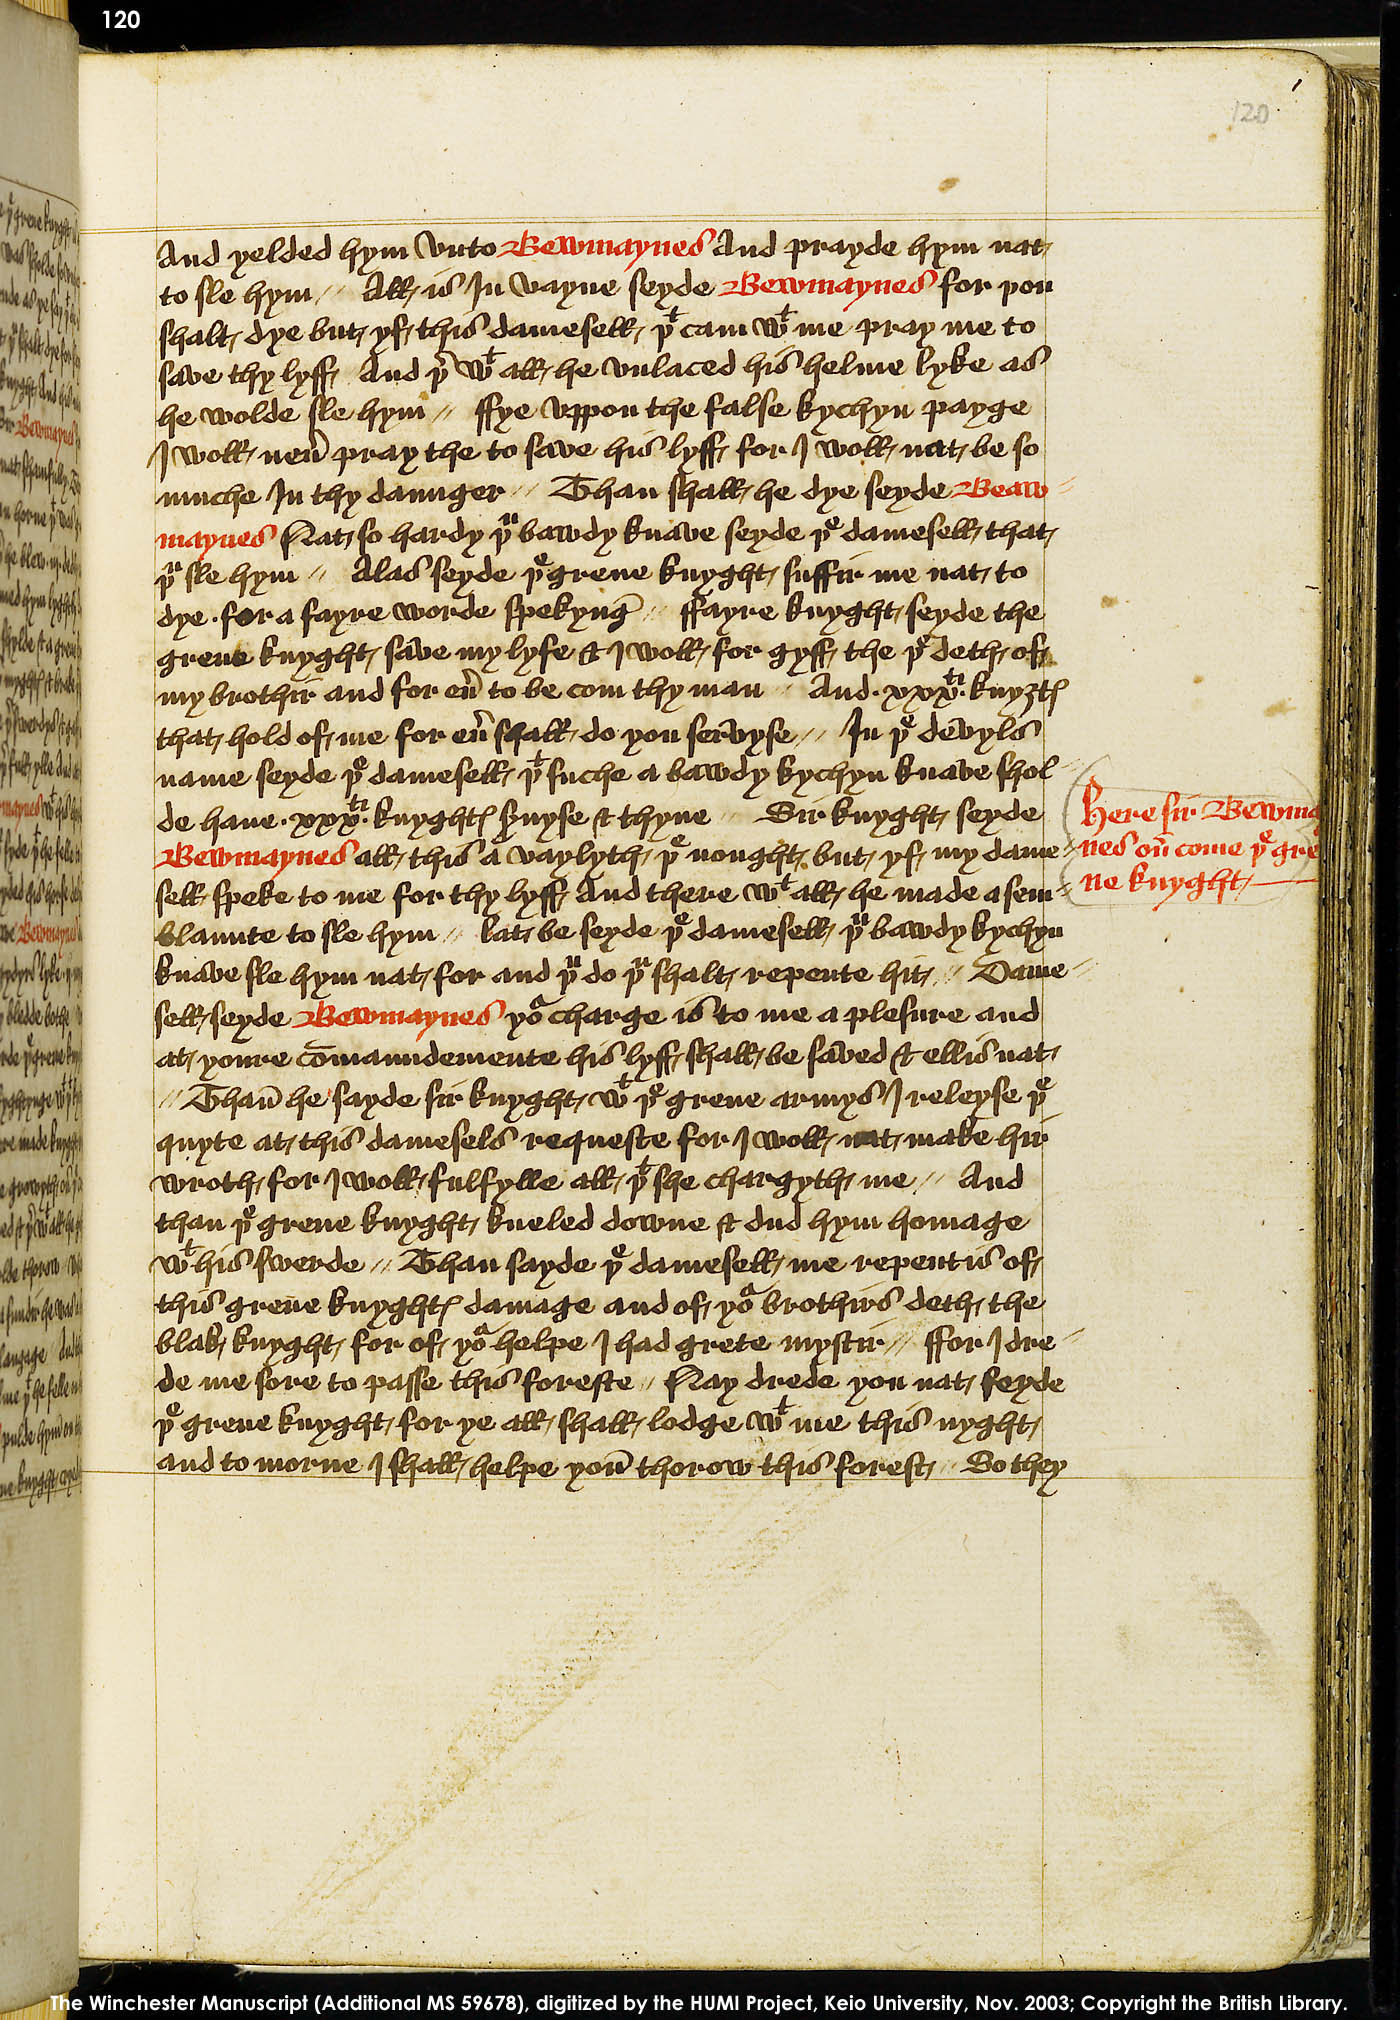 120
120
And yelded hym vnto Bewmaynes And prayde hym nat
to sle hym // All is In vayne seyde Bewmaynes for þou
shalt dye but yf this damesell þͭ cam wͭ me pray me to
save thy lyff And þ͛ wͭ all he vnlaced his helme lyke as
he wolde sle hym // ffye vppon the false kychyn payge
I woll neu͛ pray the to save his lyff for I woll nat be so
muche In thy daunger // Than shall he dye seyde Beaw
maynes Nat so hardy þͧ bawdy knave seyde þͤ damesell that
þͧ sle hym // Alas seyde þͤ grene knyght suffir me nat to
dye · for a fayre worde spekynḡ // ffayre knyght seyde the
grene knyght save my lyfe & I woll for gyff the þͤ deth of
my brothir and for eu͛ to be com thy man // And · xxxͭͥ · knyȝtꝭ
that hold of me for eu͛ shall do you servyse // In þͤ devyls
name seyde þͤ damesell þͭ suche a bawdy kychyn knave shol
de haue · xxxͭͥ · knyghtꝭ s͛uyse & thyne // Sir knyght seyde
Bewmaynes all this a vaylyth þͤ nought but yf my dame
sell speke to me for thy lyff And there wͭ all he made a sem
blaunte to sle hym // lat be seyde þͤ damesell þͧ bawdy kychyn
knave sle hym nat for and þͧ do þͧ shalt repente hit // Dame
sell seyde Bewmaynes yoͬ charge is to me a plesure and
at youre com̄aundemente his lyff shall be saved & ellis nat
// Than̄ he sayde sir knyght wͭ þͤ grene armys I releyse þͤ
quyte at this damesels requeste for I woll nat make hir
wroth for I woll fulfylle all þͭ she chargyth me // And
than þͤ grene knyght kneled downe & dud hym homage
wͭ his swerde // Than sayde þͤ damesell me repentis of
this grene knyghtꝭ damage and of yoͬ brothirs deth the
blak knyght for of yoͬ helpe I had grete mystir // ffor I dre
de me sore to passe this foreste // Nay drede you nat seyde
þͤ grene knyght for ye all shall lodge wͭ me this nyght
and to morne I shall helpe you̅ thorow this forest // So they
Here sir Bewma
nes ou͛ come þͤ gre
ne knyght
The Winchester Manuscript (Additional MS 59678), digitized by the HUMI Project, Keio University, Nov. 2003; Copyright the British Library.